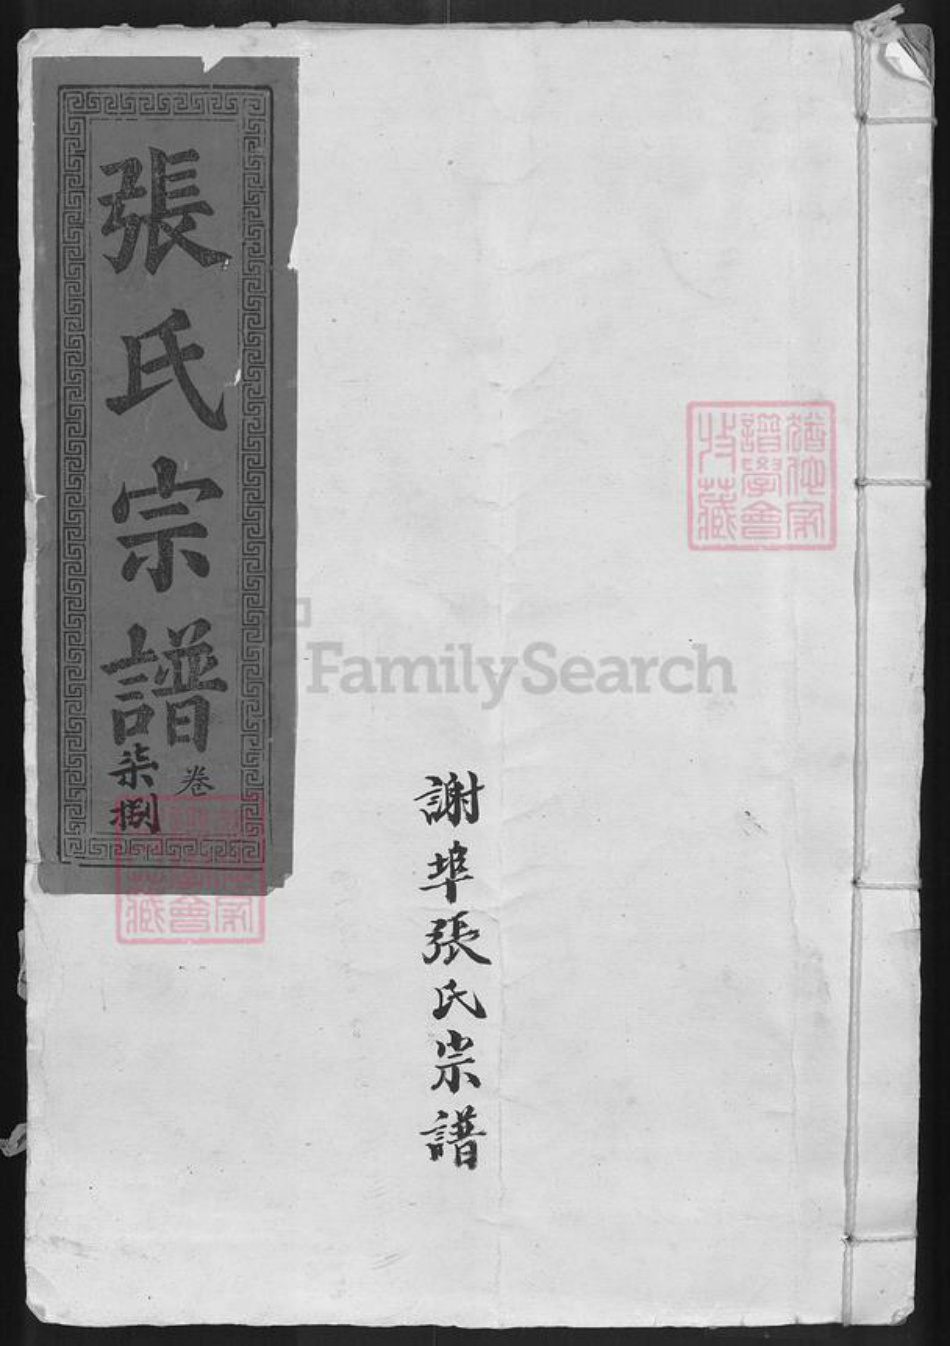 張氏宗譜
卷
柒
捌
謝埠張氏宗譜
猶他家
譜學會
收藏
FamilySearch
家
會
藏